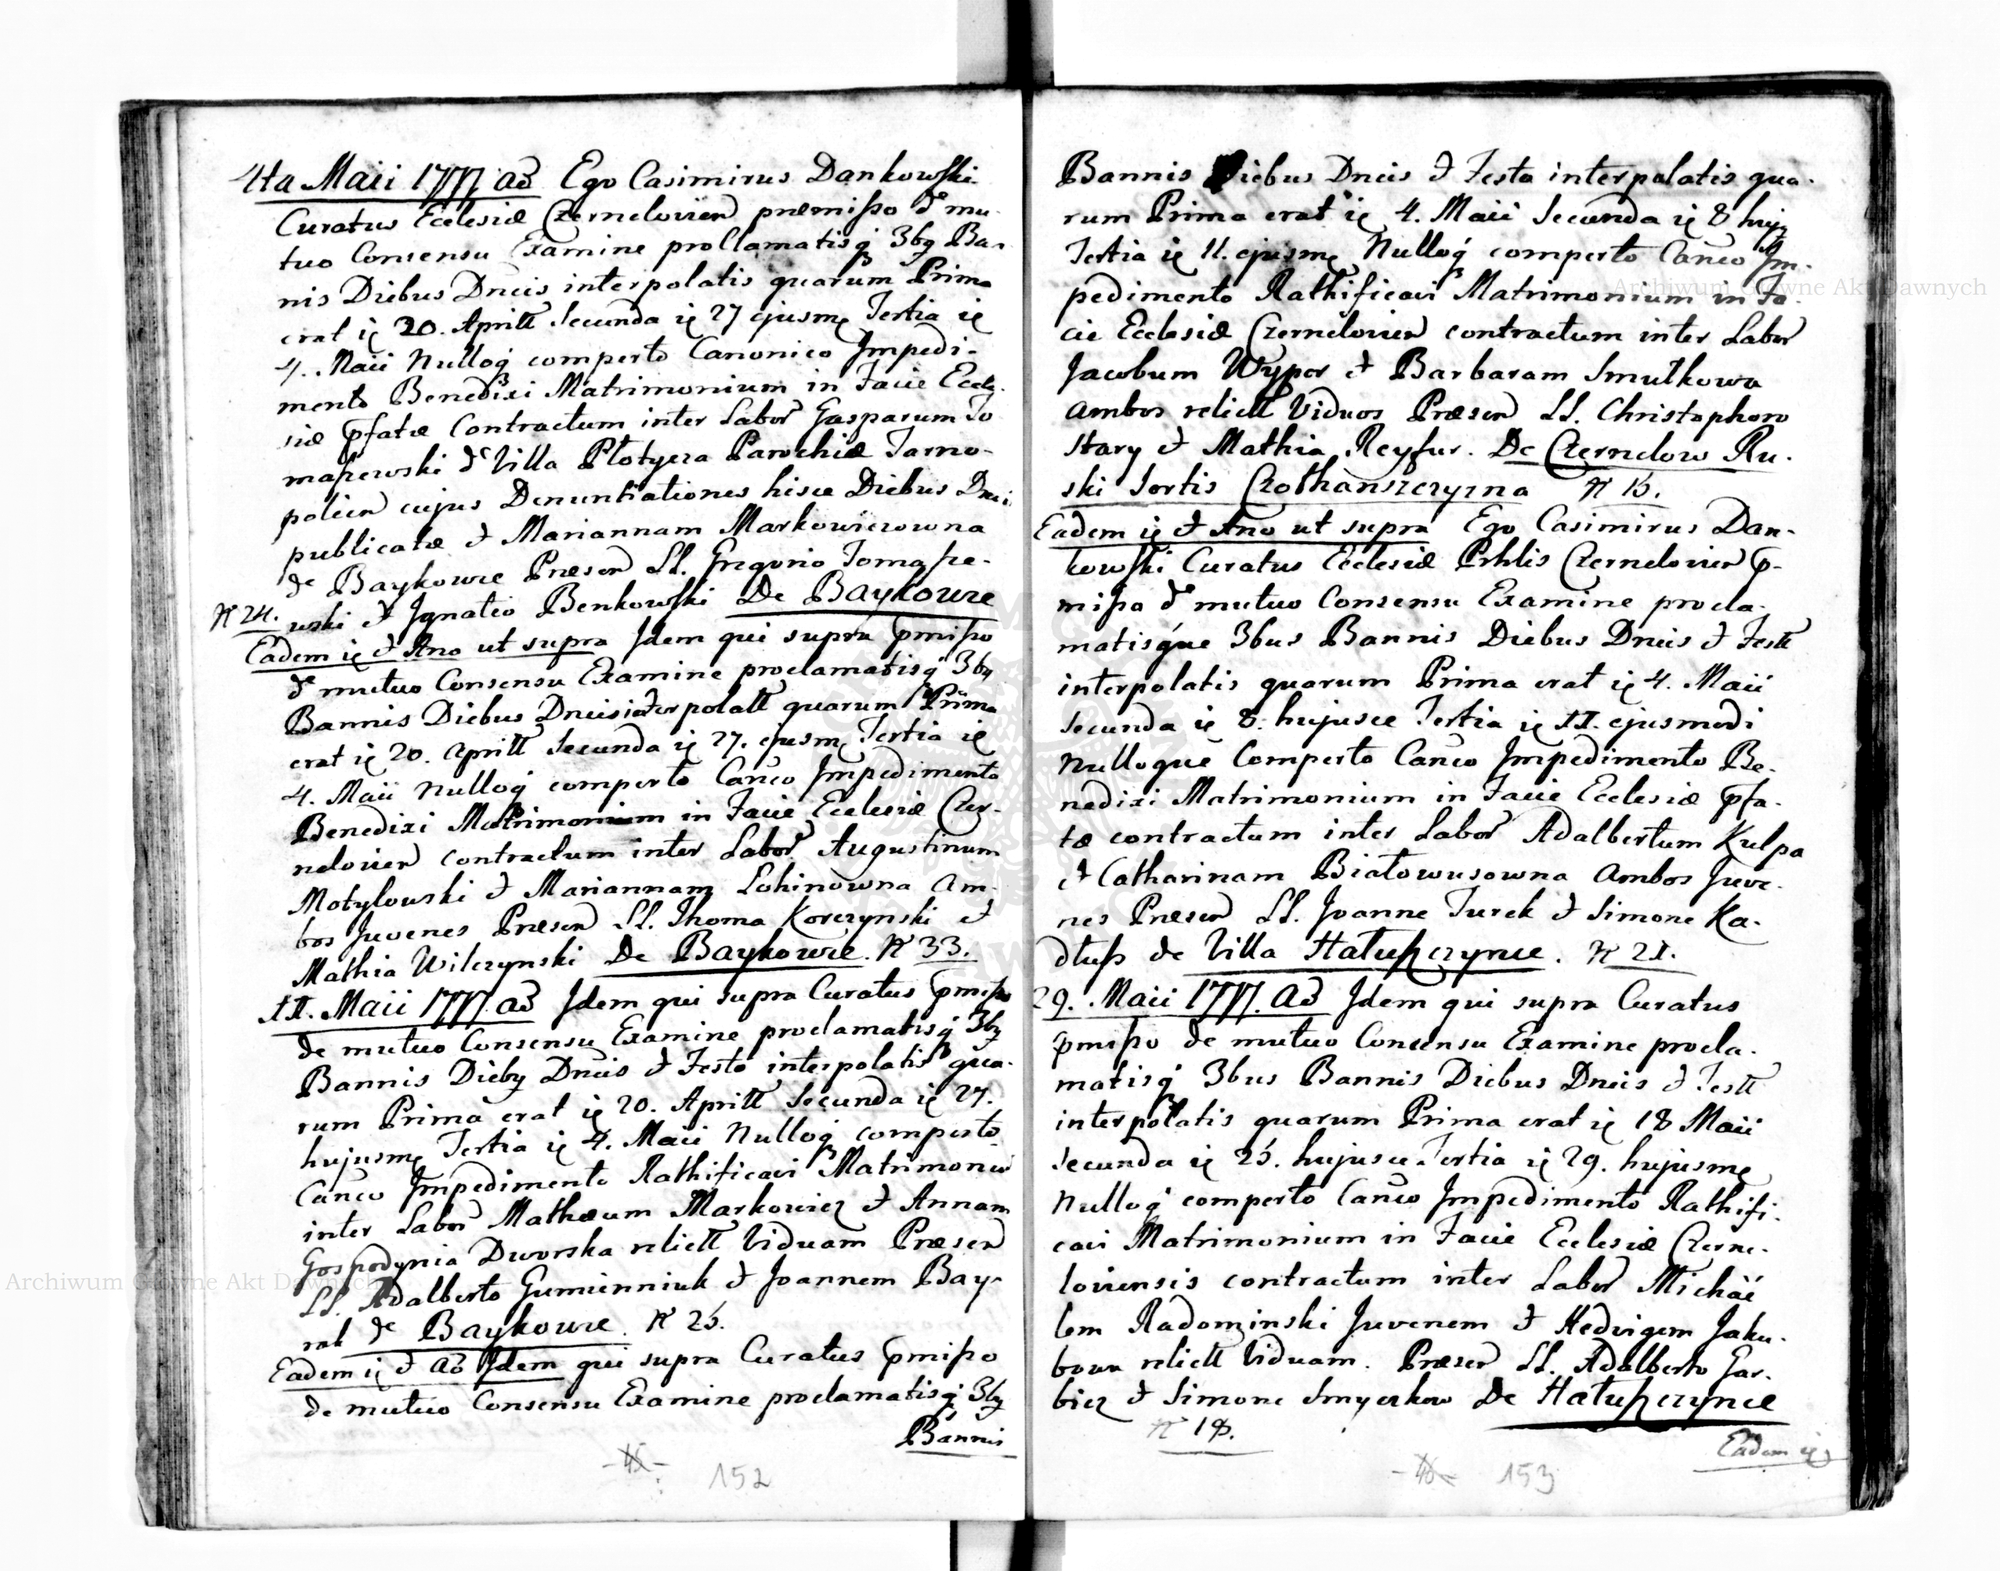 4ta Maii 1777 ao Ego Casimirus Dankowski
Curatus Ecclesiæ Czernelovien præmisso de mu-
tuo Consensu Examine proclamatisq 3bq Ban-
nis Diebus Dncis interpolatis quarum Prima
erat ie 20. Aprill Secunda ie 27 ejusme Tertia ie
4. Maii Nulloq comperto Canonico Impedi-
mento Benedixi Matrimonium in Facie Eccle-
siæ pfatæ Contractum inter Labor Gasparum To
maszewski de Villa Płotycza Parochiæ Tarno-
polien cujus Denuntiationes hisce Diebus Dnci
publicatæ et Mariannam Markowiczowna
de Baykowce Præsen LL. Gregorio Tomasze-
N 24. wski et Ignatio Benkowski De Baykowce
Eadem ie et Ano ut supra Idem qui supra pmisso
de mutuo Consensu Examine proclamatisq 3bq
Bannis Diebus Dncis interpolatt quarum Prima
erat ie 20. Aprill Secunda ie 27. ejusme Tertia ie
4. Maii Nulloq comperto Canco Impedimento
Benedixi Matrimonium in Facie Ecclesiæ Czer-
nelovien contractum inter Labor Augustinum
Motylowski et Mariannam Lohinowna Am-
bos Juvenes Præsen LL. Thoma Korczynski et
Mathia Wilczynski De Baykowce. N 33.
11. Maii 1777. ao Idem qui supra Curatus pmisso
de mutuo Consensu Examine proclamatisq 3bq
Bannis Diebq Dncis et Festo interpolatis qua-
rum Prima erat ie 20. Aprill Secunda ie 27.
hujusme Tertia ie 4. Maii Nulloq comperto
Canco Impedimento Rathificavi Matrimoniu
inter Labor Mathæum Markowicz et Annam
Gospodynia Dworska relictt Viduam Præsen
LL. Adalberto Gumienniuk et Joannem Bay-
rak de Baykowce. N 25.
Eadem ie et ao Idem qui supra Curatus pmisso
de mutuo Consensu Examine proclamatisq 3bq
Bannis
152
Bannis Diebus Dncis et Festo interpolatis qua-
rum Prima erat ie 4. Maii Secunda ie 8 hujq
Tertia ie 11. ejusme Nulloq comperto Canco Im-
pedimento Rathificavi Matrimonium in Fa-
cie Ecclesiæ Czernelovien contractum inter Labor
Jacobum Wyper et Barbaram Smutkowa
Ambos relictt Viduos Præsen LL. Christophoro
Stary et Mathia Reyfur. De Czernelow Ru-
ski Sortis Czołhanszczyzna N 15.
Eadem ie et Ano ut supra Ego Casimirus Dan-
kowski Curatus Ecclesiæ Prhlis Czernelovien p-
misso de mutuo Consensu Examine procla-
matisque 3bus Bannis Diebus Dncis et Festt
interpolatis quarum Prima erat ie 4. Maii
Secunda ie 8. hujusce Tertia ie 11. ejusmodi
Nulloque Comperto Canco Impedimento Be-
nedixi Matrimonium in Facie Ecclesiæ pfa-
tæ contractum inter Labor Adalbertum Kulpa
et Catharinam Białowusowna Ambos Juve-
nes Præsen LL. Joanne Turek et Simone Ka-
dłusz de Villa Hałuszczynce. N 21.
29. Maii 1777. ao Idem qui supra Curatus
pmisso de mutuo Consensu Examine procla-
matisq 3bus Bannis Diebus Dncis et Festt
interpolatis quarum Prima erat ie 18 Maii
Secunda ie 25. hujusce Tertia ie 29. hujusme
Nulloq comperto Canco Impedimento Rathifi-
cavi Matrimonium in Facie Ecclesiæ Czerne-
loviensis contractum inter Labor Michäe
lem Radominski Juvenem et Hedvigem Jaku-
bowa relictt Viduam. Præsen LL. Adalberto Gar-
bicz et Simone Smyczkow De Hałuszczynce
N 18.
Eadem ie
153
Archiwum Główne Akt Dawnych
Archiwum Główne Akt Dawnych